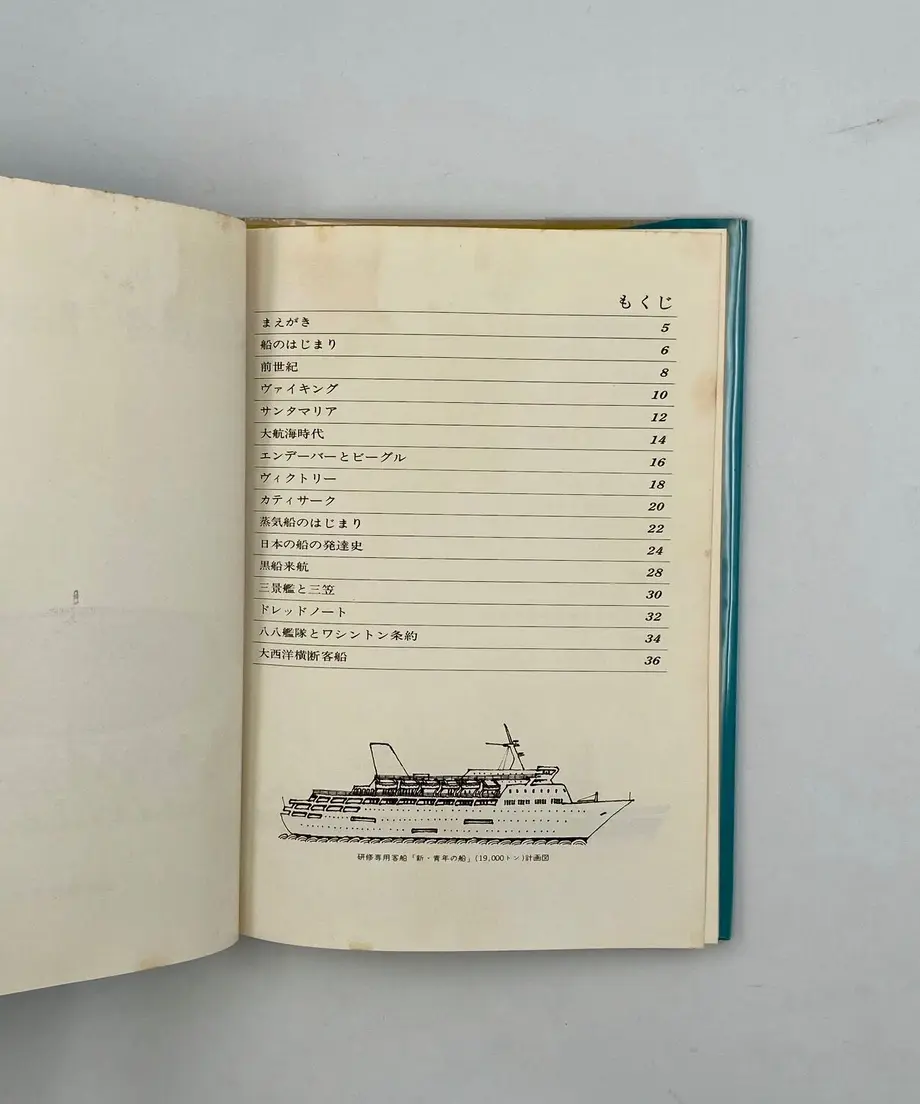 もくじ
まえがき 5
船のはじまり 6
前世紀 8
ヴァイキング 10
サンタマリア 12
大航海時代 14
エンデーバーとビーグル 16
ヴィクトリー 18
カティサーク 20
蒸気船のはじまり 22
日本の船の発達史 24
黒船来航 28
三景艦と三笠 30
ドレッドノート 32
八八艦隊とワシントン条約 34
大西洋横断客船 36
研修専用客船「新・青年の船」(19,000トン)計画図